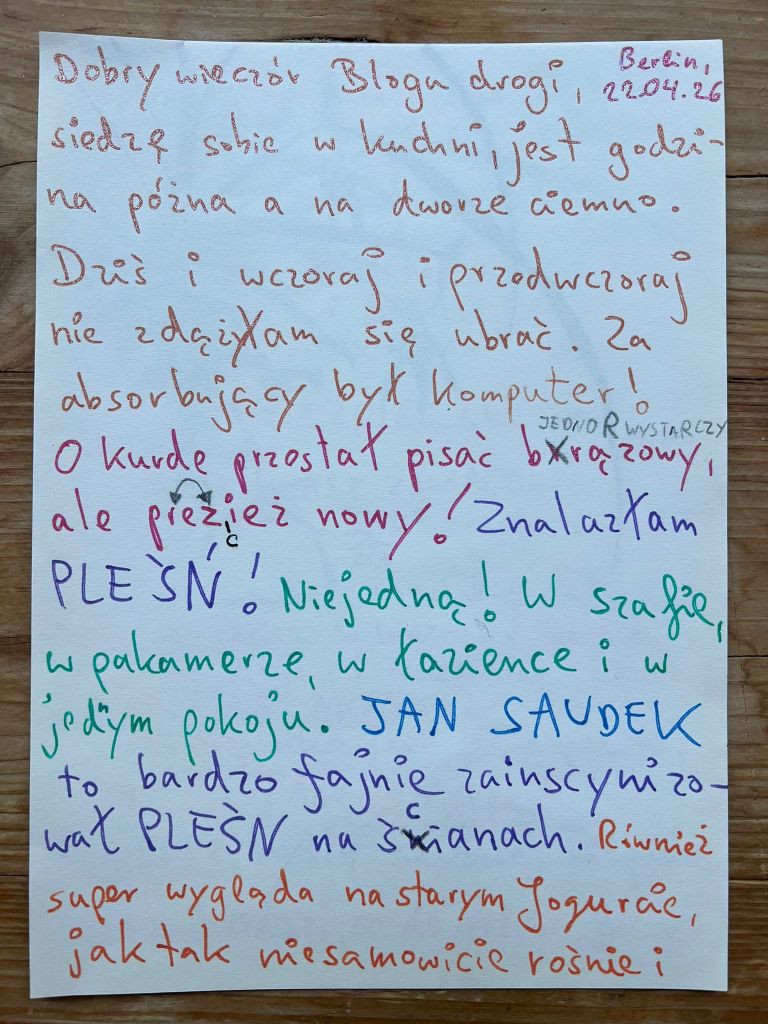 Dobry wieczór Blogu drogi,
Berlin,
22.04.26
siedzę sobie w kuchni, jest godzi-
na późna a na dworze ciemno.
Dziś i wczoraj i przedwczoraj
nie zdążyłam się ubrać. Za
absorbujący był komputer!
JEDNO R WYSTARCZY
O kurde przestał pisać brązowy,
ale pież nowy! Znalazłam
c
PLEŚŃ! Niejedną! W szafie,
w pakamerze, w łazience i w
jednym pokoju. JAN SAUDEK
to bardzo fajnie zainscynizo-
wał PLEŚN na ścianach. Riwnież
super wygląda na starym Jogurcie,
jak tak niesamowicie rośnie i